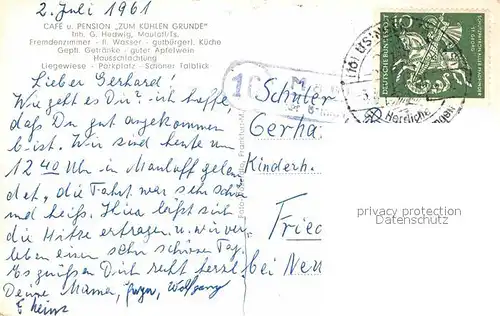 2. Juli 1961
CAFÉ u. PENSION „ZUM KÜHLEN GRUNDE"
Inh. G. Hedwig, Mauloff/Ts.
Fremdenzimmer - fl. Wasser - gutbürgerl. Küche
Gepfl. Getränke - guter Apfelwein
Hausschlachtung
Liegewiese - Parkplatz - Schöner Talblick
Lieber Gerhard!
Wie geht es Dir? ich hoffe,
daß Du gut angekommen
bist. Wir sind heute um
12 40 Uhr in Mauloff gelan
det, die Fahrt war sehr schön
und heiß. Hier läßt sich
die Hitze ertragen u. wir ver-
leben einen sehr schönen Tag.
Es grüßen Dich recht herzl.
Deine Mama, Jürgen, Wolfgang
& Heinz
Schüler
Gerha
Kinderh.
Fried
bei Neu
DEUTSCHE BUNDESPOST
10
Herrliche
privacy protection
Datenschutz